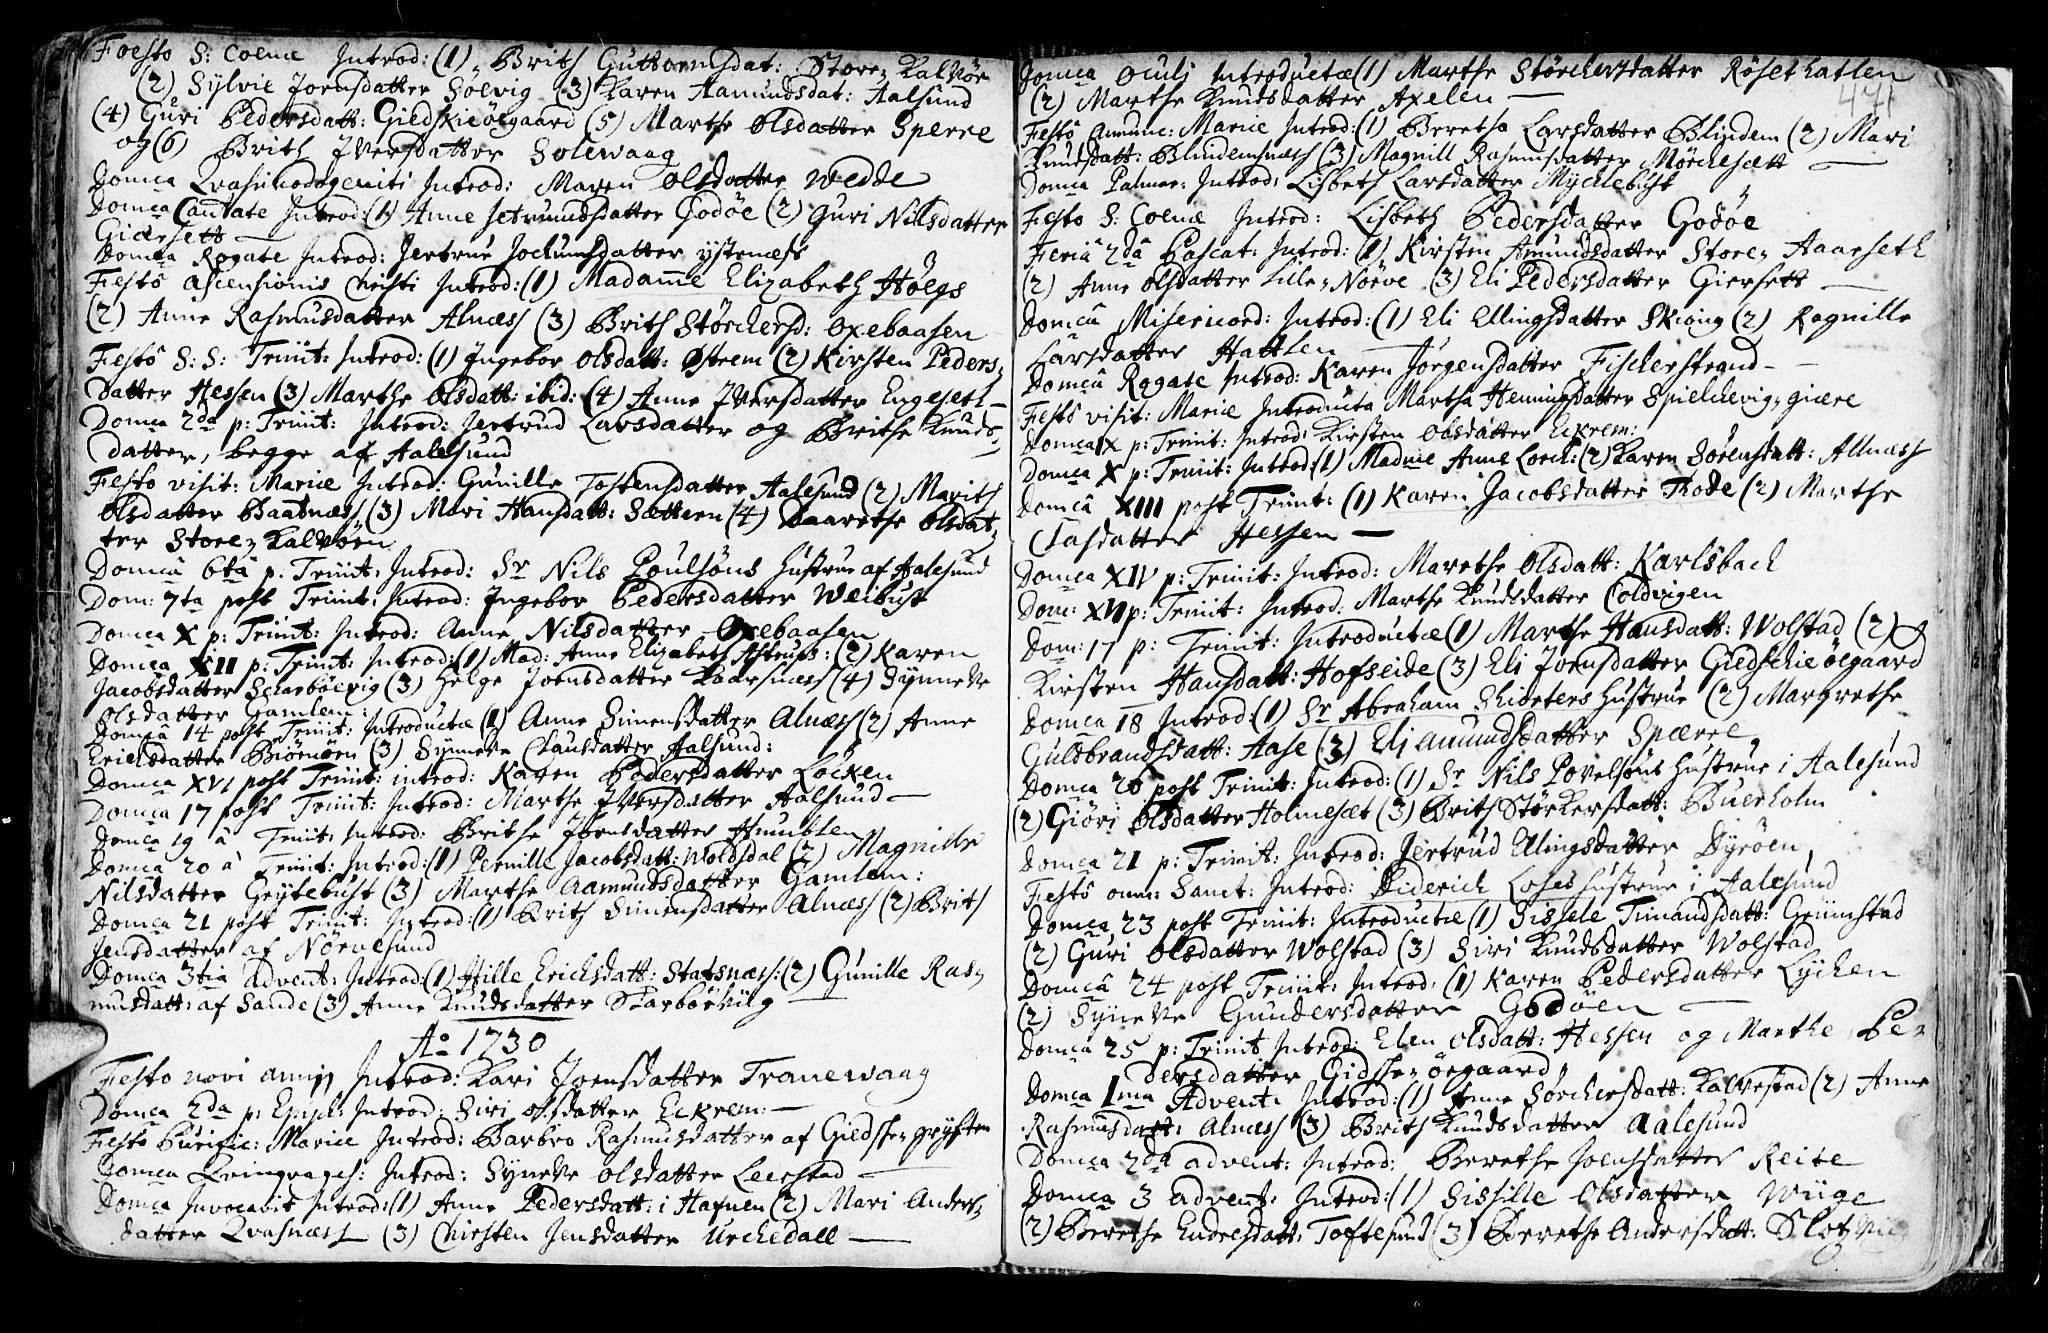 Foesto S: Coenæ Introd: (1) Brith Guttormsdat: Store-Kalvöe
(2) Sylvie Joensdatter Söevig (3) Karen Aamundsdat: Aalsund
(4) Guri Pedersdatt: Giedskieöegaard (5) Marthe Olsdatter Sperre
og (6) Brith Iversdatter Solewaag
Domca Qvasimodogeniti Introd: Maren Olsdatter Wedde
Domca Cantate Introd: (1) Anne Jetmundsdatter Godöe (2) Guri Nilsdatter
Giersett
Domca Rogate Introd: Jertrue Jochumsdatter ystenæss
Festô ascensionis Christi Introd: (1) Madamme Elizabeth Höegs
(2) Anne Rasmusdatter Alnæss (3) Brith Störchersd: Oxebaasen
Festô S: S: Trinit: Introd: (1) Ingebor Olsdatt: Østrem (2) Kirsten Peders-
datter Hessen (3) Marthe Olsdatt: ibid: (4) Anne Iversdatter Engeseth
Domca 2da p: Trinit: Introd: Jertrud Larsdatter og Brithe Knuds-
datter, begge af Aalesund
Festo visit: Mariæ Introd: Gunille Tostensdatter Aalesund (2) Marith
Olsdatter Baatnæss (3) Mari Hansdatt: Sættern (4) Baarethe Olsdat-
ter Store-Kalvöen
Domcâ 6tâ p: Trinit: Introd: Sr Nils Poulsöns Hustrue af Aalesund
Dom: 7ta post Trinit: Introd: Ingebor Pedersdatter Weibust
Domca X p: Trinit: Introd: Anne Nilsdatter Oxebaasen
Domca XII p: Trinit: Introd: (1) Mad: Anne Elizabeth Astrups: (2) Karen
Jacobsdatter Scharböevig (3) Helge Joensdatter Kaarsnæss (4) Synneve
Olsdatter Gamlem:
Domca 14 post Trinit: Introductæ (1) Anne Simensdatter Alnæss (2) Anne
Erichsdatter Biörnöen (3) Synneve Clausdatter Aalsund:
Domca XVI post Trinit: introd: Karen Pedersdatter Löcken
Domca 17 post Trinit: Introd: Marthe Iversdatter Aalsund
Domca 19 â Trinit: Introd: Brithe Joensdatter Humblen
Domca 20 â Trinit: Introd: (1) Pernille Jacobsdatt: Woldsdal (2) Magnille
Nilsdatter Grytebust (3) Marthe Aamundsdatter Gamlem:
Domca 21 post Trinit: Introd: (1) Brith Simensdatter Alnæss (2) Brith
Jensdatter af Nörvesund
Domca 3tia Advent: Introd: (1) Hille Erichsdatt: Statsnæss: (2) Gunille Ras-
musdatt: af Sande (3) Anne Knudsdatter Skarbövig
Ao 1730
Festo novi anni Introd: Kari Joensdatter Tranewaag
Domca 2da p: Epiph: Introd: Siri Olsdatter Eckrem:
Festô Purific: Mariæ Introd: Barbro Rasmusdatter af Giedske-
Domca Qvinqvages: Introd: Syneve Olsdatter Leerstad
Domca Invocavit Introd: (1) Anne Pedersdatt: i Hafnen (2) Mari Anders-
datter Qvasnæss (3) Chirsten Jensdatter Urchedall
471
Domca Oculi Introductæ (1) Marthe Störchersdatter Röset hatlen
(2) Marthe Knudsdatter Axelen
Festô Annunc: Mariæ Introd: (1) Beretha Larsdatter Blindem (2) Mari
Knudsdatt: Blindemsnæss (3) Magnill Rasmusdatter Mörchesett
Domca Palmar: Introd: Lisbeth Larsdatter Mychlebust
Festo S: Coenæ Introd: Lisbeth Pedersdatter Godöe
Feriâ 2dâ Pascat: Introd: (1) Kirsten Amundsdatter Store-Aarseth
(2) Anne Olsdatter Lille-Nörve (3) Eli Pedersdatter Giersett
Domcâ Misericord: Introd: (1) Eli Ellingsdatter Skiong (2) Ragnille
Larsdatter Hattlen
Domcâ Rogate Introd: Karen Jörgensdatter Fischerstrand
Festô visit: Mariæ Introducta Martha Henningsdatter Spielchevig-giære
Domca IX p: Trinit: Introd: Kirsten Olsdatter Eckrem:
Domca X p: Trinit: Introd: (1) Madme Anne Lorch: (2) Karen Sörensdatt: Allnæss
Domcâ XIII post Trinit: (1) Karen Jacobsdatter Thode (2) Marthe
Clasdatter Hessen
Domca XIV p: Trinit: Introd: Marethe Olsdatt: Karlsbach
Dom: XVI p: Trinit: Introd: Marthe Knudsdatter Coldvigen
Dom: 17 p: Trinit: Introductæ (1) Marthe Hansdatt: Wolstad (2)
Kirsten Hansdatt: Hofseide (3) Eli Joensdatter Giedschie öegaard
Domca 18 Introd: (1) Sr Abraham Shiöters Hustrue (2) Margrethe
Guldbrandsdatt: Aase (3) Eli amundsdatter Spærre
Domca 20 post Trinit: Introd: (1) Sr Nils Povelsöns Hustrue i Aalesund
(2) Giöri Olsdatter Holmesæt (3) Brith Störkersdatt: Buerholm
Domca 21 p: Trinit: Introd: Jertrud Ellingsdatter Dyröen
Festô omn: Sanct: Introd: Diderich Loses Hustrue i Aalesund
Domca 23 post Trinit: Introductæ (1) Sissele Timandsdatt: Grimstad
(2) Guri Olsdatter Wolstad (3) Siri Knudsdatter Wolstad
Domcâ 24 post Trinit: Introd: (1) Karen Pedersdatter Lychen
(2) Syneve Gundersdatter Godöen
Domca 25 p: Trinit Introd: Elen Olsdatt: Hessen og Marthe Pe-
dersdatter Gidske-öegaard
Domca 1ma Advent: Introd: (1) Anne Sörchersdatt: Kalvestad (2) Anne
Rasmusdatt: Alnæss (3) Brith Knudsdatter Aalesund
Domca 2da advent: Introd: Berethe Joensdatter Reite
Domca 3 advent: Introd: (1) Sissille Olsdatter Wiige
(2) Berethe Endresdatt: Toftesund (3) Berethe Andersdatt: